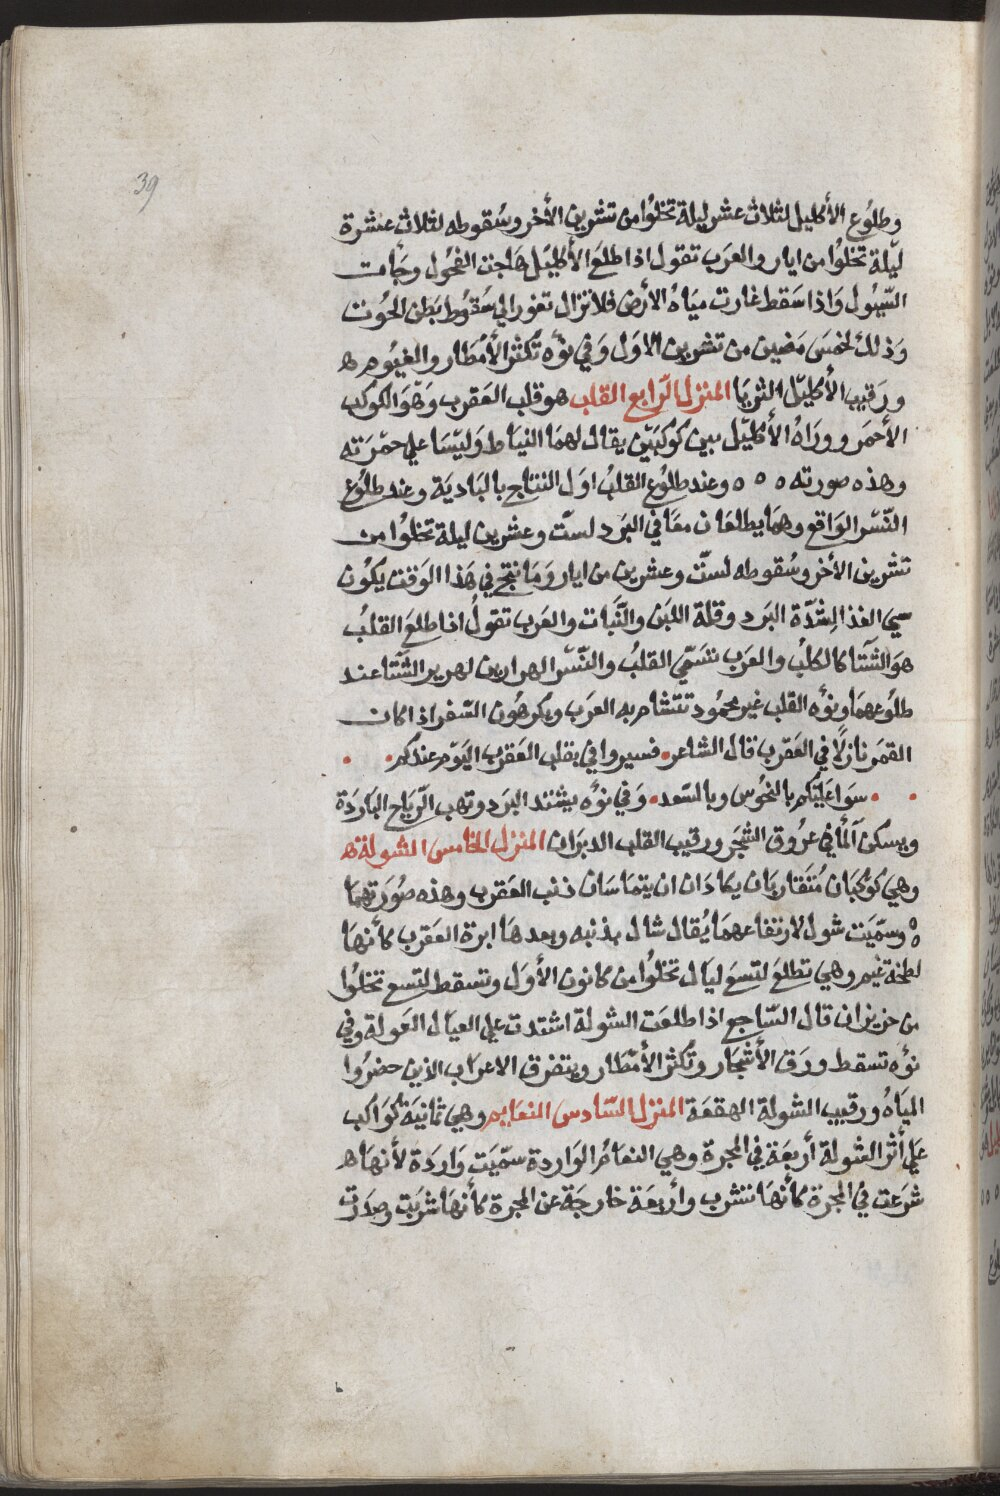 39
وطلوُع الأكليل لثلاث عشر ليلة تخلوُا من تشرين الأخر وسُقوطه لثلاث عشرة
ليّلة تخلوُا من ايار والعرَب تقول اذا طلعَ الأكليَل هَاجت الفحُول وجَأت
السّيُول وَاذا سَقط غارت ميَاهُ الأرض فلا تزال تغور الي سَقوُط بَطن الحُوت
وَذلك لخمسَ مَضين من تشرين الاوَل وَفي نؤه تكثر الأمْطَار والغيُوم ه
ورَقيب الأكليّل الثريَا المنزل الرّابع القلب هو قلب العَقرب وَهوَ الكوْكب
الأحمَر وورَاهُ الأكليّل بين كوْكبَيّن يقال لهمَا النيَاط وَليّسَا علي حمّرَته
وهذه صورته ه ه ه وعند طلوُع القلبُ اوَل النتاج بالبَاديَة وعند طلوُع
النّسْر الوَاقع وهمَا يطلعَان معَا في البَرد لستّ وعشرين ليلة تخلوُا من
تشرين الأخر وسُقوطه لستّ وعشرين من ايار وَمَا نتج في هَذا الوَقت يكوُن
سيي الغذا لِشدّة البرَد وقلة اللبَن والنَّبات والعَرب تقولُ اذا طلعَ القلبُ
هوَ الشّتَا كالكلب والعرَب تسَمّي القلبُ والنّسّر الهرارين لهرير الشّتَا عند
طلوُعهمَا ونؤه القلب غير محمُود تتشَام به العرَب ويكرهُون السّفر اذا كان
القمَر نازلًا في العَقرب قال الشاعر • فسيروا في بقلب العَقربِ اليَوّم عندكم •
• سوَا عَليّكم بالنحُوس وبالسّعد • وَفي نؤه يشتد البرَد وتهب الرّيَاح البَاردَة
ويسكن آلمأ في عرُوق الشجَر ورقيب القلب الدبرَان المنزل الخامس الشوله ه
وهيَ كوْكبَان مُتقاربَان يكادَان ان يتمَاسَان ذنب العَقرب وهذه صُورَتهمَا
ه ه وسمّيَت شول لارتفاعهمَا يُقال شال بذنبه وبعدهَا ابرة العَقرب كأنهَا
لطخة غيم وهي تطلعَ لتسعَ ليَال تخلوُا من كانون الأوَل وتسقط لتسع تخلوُا
من حزيران قال السّاجع اذا طلعَت الشولة اشتدت علي العيَال العَولة وفي
نؤه تسقط ورَق الأشجَار وتكثر الأمْطَار ويتفرق الاعرَاب الذين حضرُوا
الميَاهُ ورقيب الشولة الهقعَة المنزل السّادس النعَايم وهي ثمانيَة كوَاكب
عَلي أثر الشولة أربعَة في المجرة وهي النعَامُ الوَاردة سمّيَت وَاردَة لأنهَا ه
شرَعَت في المجرة كأنهَا تشرب وأربعَة خارجَة عن المجرة كأنهَا شربَت وصدَرت